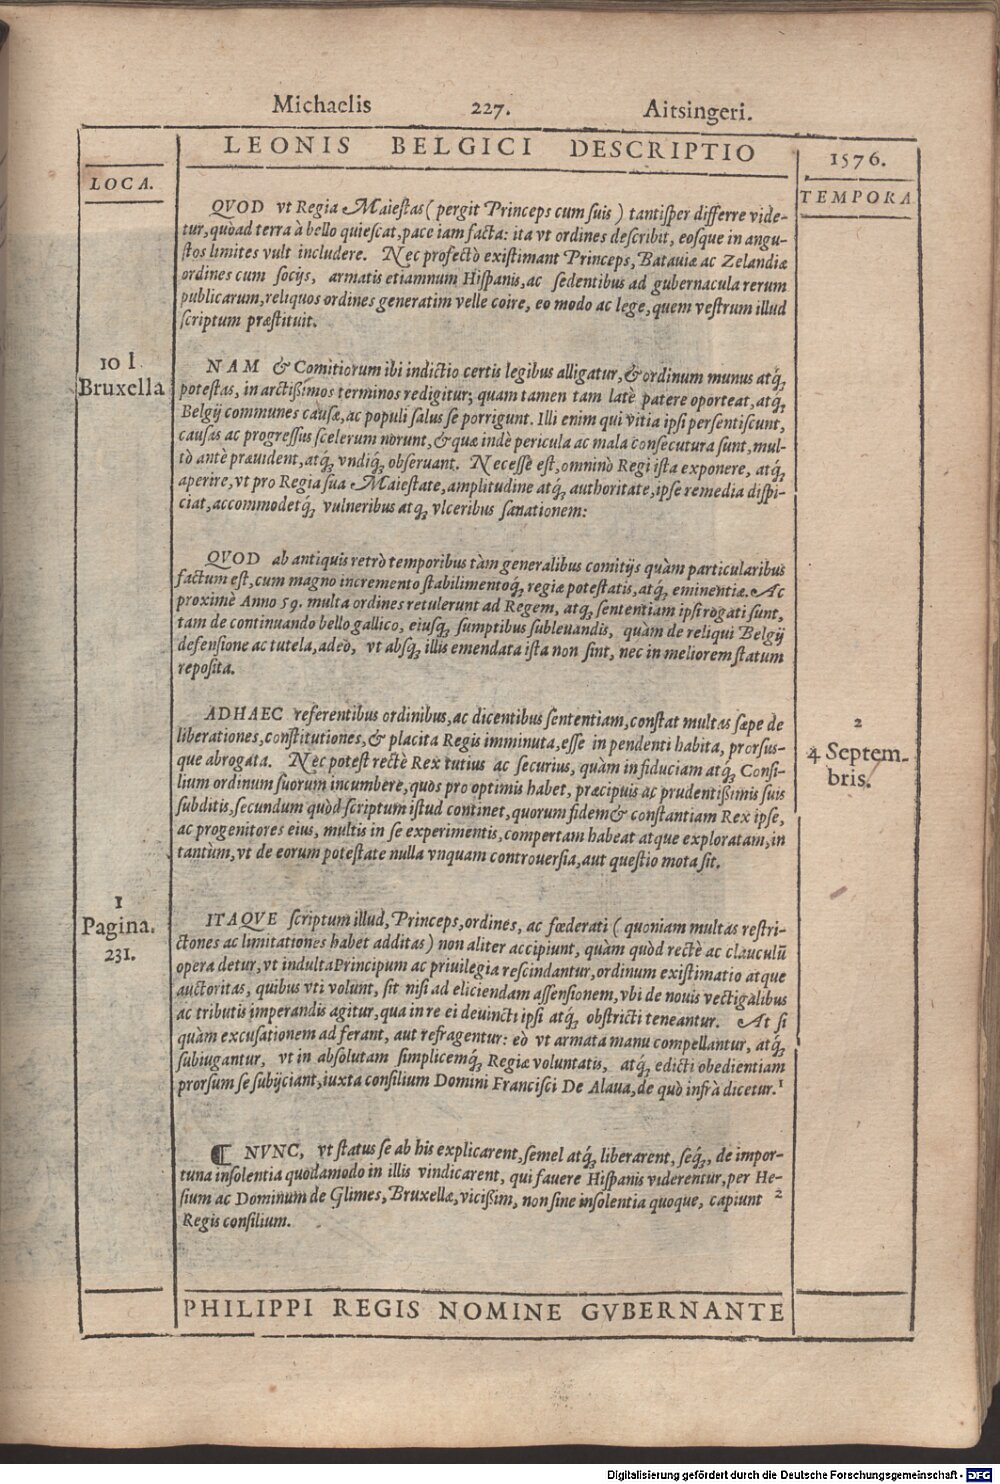 Michaelis 227. Aitsingeri.
LEONIS BELGICI DESCRIPTIO
1576.
LOCA.
TEMPORA
QVOD vt Regia Maiestas (pergit Princeps cum suis) tantisper differre vide-
tur, quòad terra à bello quiescat, pace iam facta: ita vt ordines describit, eosque in angu-
stos limites vult includere. Nec profectò existimant Princeps, Batauiæ ac Zelandiæ
ordines cum socijs, armatis etiamnum Hispanis, ac sedentibus ad gubernacula rerum
publicarum, reliquos ordines generatim velle coire, eo modo ac lege, quem vestrum illud
scriptum præstituit.
10 l
Bruxella
NAM & Comitiorum ibi indictio certis legibus alligatur, & ordinum munus atq́;
potestas, in arctißimos terminos redigitur; quam tamen tam latè patere oporteat, atq́;
Belgij communes causæ, ac populi salus se porrigunt. Illi enim qui vitia ipsi persentiscunt,
causas ac progressus scelerum norunt, & quæ indè pericula ac mala consecutura sunt, mul-
tò antè præuident, atq́; vndiq́; obseruant. Necesse est, omninò Regi ista exponere, atq́;
aperire, vt pro Regia sua Maiestate, amplitudine atq́; authoritate, ipse remedia dispi-
ciat, accommodetq́; vulneribus atq́; vlceribus sanationem:
QVOD ab antiquis retrò temporibus tàm generalibus comitijs quàm particularibus
factum est, cum magno incremento stabilimentoq́; regiæ potestatis, atq́; eminentiæ. Ac
proximè Anno 59. multa ordines retulerunt ad Regem, atq́; sententiam ipsi rogati sunt,
tam de continuando bello gallico, eiusq́; sumptibus subleuandis, quàm de reliqui Belgij
defensione ac tutela, adeò, vt absq́; illis emendata ista non sint, nec in meliorem statum
reposita.
ADHAEC referentibus ordinibus, ac dicentibus sententiam, constat multas sæpe de
liberationes, constitutiones, & placita Regis imminuta, esse in pendenti habita, prorsus-
que abrogata. Nec potest rectè Rex tutius ac securius, quàm in fiduciam atq́; Consi-
lium ordinum suorum incumbere, quos pro optimis habet, præcipuis ac prudentißimis suis
subditis, secundum quòd scriptum istud continet, quorum fidem & constantiam Rex ipse,
ac progenitores eius, multis in se experimentis, compertam habeat atque exploratam, in
tantùm, vt de eorum potestate nulla vnquam controuersia, aut questio mota sit.
2
4 Septem-
bris.
1
Pagina.
231.
ITAQVE scriptum illud, Princeps, ordines, ac fœderati (quoniam multas restri-
ctones ac limitationes habet additas) non aliter accipiunt, quàm quòd rectè ac clauculū
opera detur, vt indulta Principum ac priuilegia rescindantur, ordinum existimatio atque
auctoritas, quibus vti volunt, sit nisi ad eliciendam assensionem, vbi de nouis vectigalibus
ac tributis imperandis agitur, qua in re ei deuincti ipsi atq́; obstricti teneantur. At si
quàm excusationem ad ferant, aut refragentur: eò vt armata manu compellantur, atq́;
subiugantur, vt in absolutam simplicemq́; Regiæ voluntatis, atq́; edicti obedientiam
prorsum se subijciant, iuxta consilium Domini Francisci De Alaua, de quò infrà dicetur. 1
¶ NVNC, vt status se ab his explicarent, semel atq́; liberarent, seq́;, de impor-
tuna insolentia quodamodo in illis vindicarent, qui fauere Hispanis viderentur, per He-
sium ac Dominum de Glimes, Bruxellæ, vicißim, non sine insolentia quoque, capiunt 2
Regis consilium.
PHILIPPI REGIS NOMINE GVBERNANTE
Digitalisierung gefördert durch die Deutsche Forschungsgemeinschaft - DFG